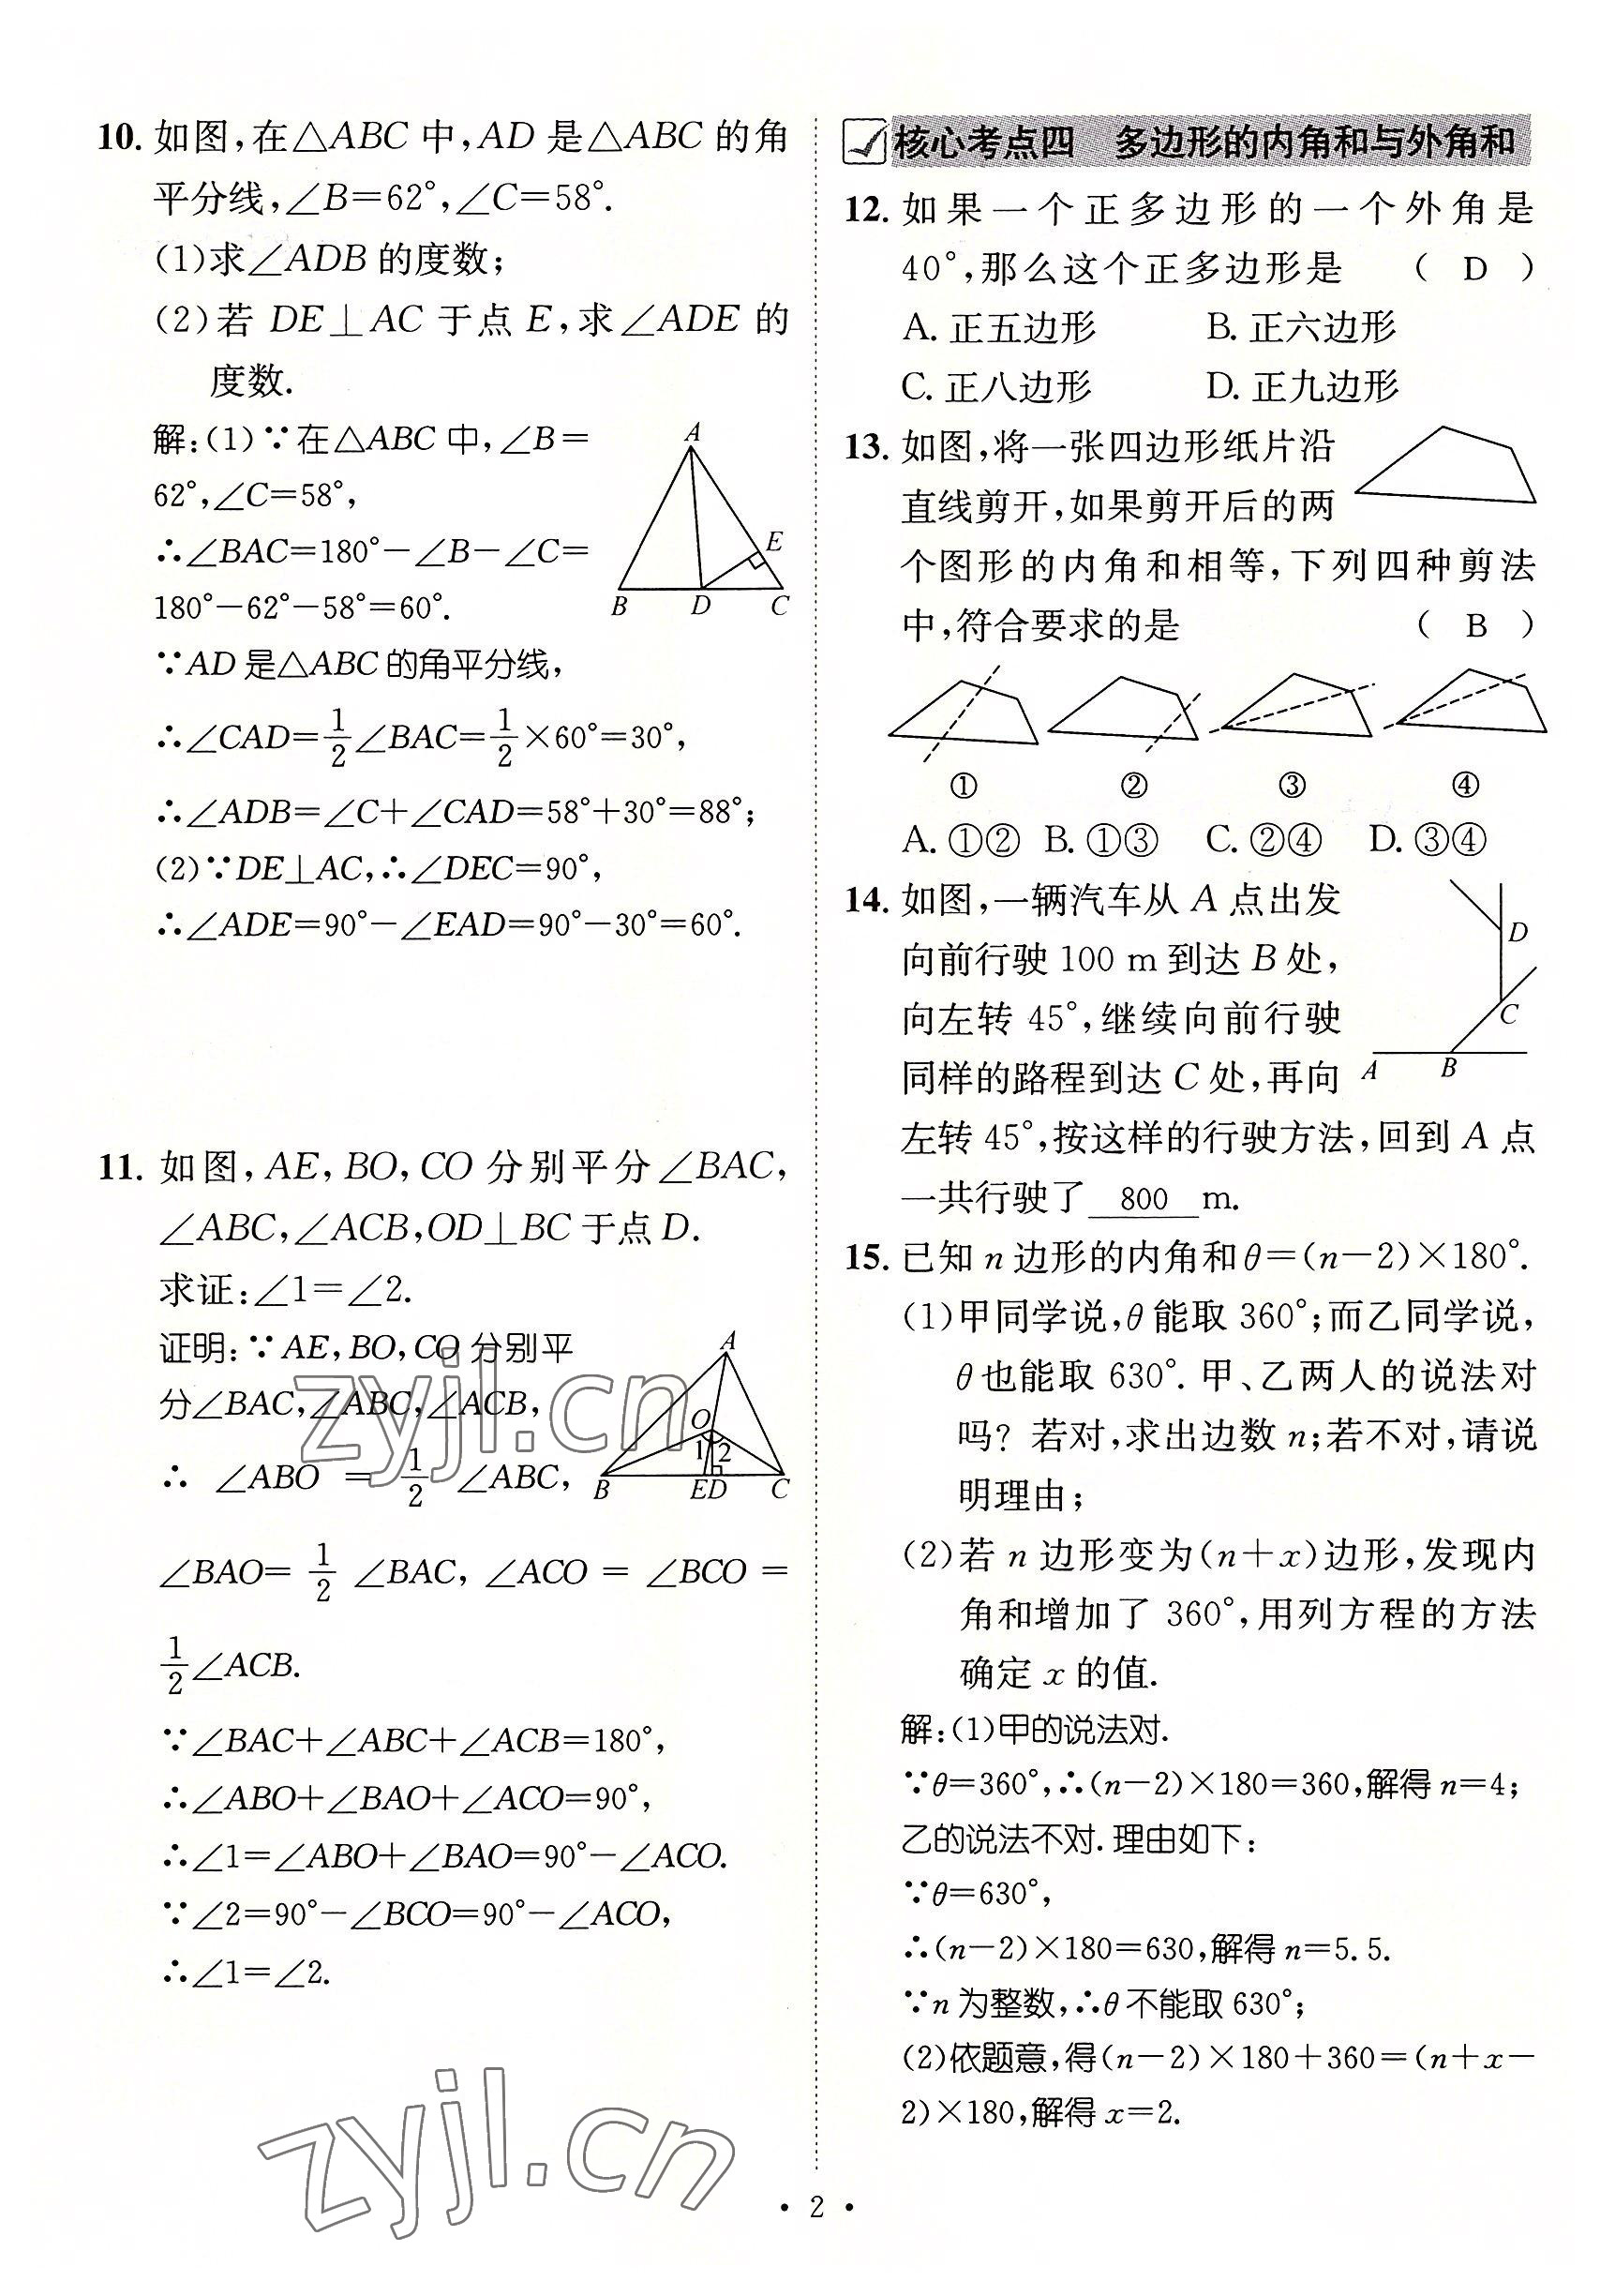 10. 如图,在△ABC 中,AD 是△ABC 的角
平分线,∠B=62°,∠C=58°.
(1)求∠ADB 的度数;
(2)若 DE⊥AC 于点 E,求∠ADE 的
度数.
解:(1)∵在△ABC 中,∠B=
62°,∠C=58°,
∴∠BAC=180°-∠B-∠C=
180°-62°-58°=60°.
∵AD 是△ABC 的角平分线,
∴∠CAD=1/2∠BAC=1/2×60°=30°,
∴∠ADB=∠C+∠CAD=58°+30°=88°;
(2)∵DE⊥AC,∴∠DEC=90°,
∴∠ADE=90°-∠EAD=90°-30°=60°.
A
E
B D C
11. 如图,AE,BO,CO 分别平分∠BAC,
∠ABC,∠ACB,OD⊥BC 于点 D.
求证:∠1=∠2.
证明:∵AE,BO,CO 分别平
分∠BAC,∠ABC,∠ACB,
∴ ∠ABO = 1/2 ∠ABC,
∠BAO= 1/2 ∠BAC, ∠ACO = ∠BCO =
1/2∠ACB.
∵∠BAC+∠ABC+∠ACB=180°,
∴∠ABO+∠BAO+∠ACO=90°,
∴∠1=∠ABO+∠BAO=90°-∠ACO.
∵∠2=90°-∠BCO=90°-∠ACO,
∴∠1=∠2.
A
O
1 2
B ED C
zyjl.cn
zyjl.cn
核心考点四 多边形的内角和与外角和
12. 如果一个正多边形的一个外角是
40°,那么这个正多边形是 ( D )
A. 正五边形 B. 正六边形
C. 正八边形 D. 正九边形
13. 如图,将一张四边形纸片沿
直线剪开,如果剪开后的两
个图形的内角和相等,下列四种剪法
中,符合要求的是 ( B )
① ② ③ ④
A. ①② B. ①③ C. ②④ D. ③④
14. 如图,一辆汽车从 A 点出发
向前行驶 100 m 到达 B 处,
向左转 45°,继续向前行驶
同样的路程到达 C 处,再向
左转 45°,按这样的行驶方法,回到 A 点
一共行驶了 800 m.
D
C
A B
15. 已知 n 边形的内角和 θ=(n-2)×180°.
(1)甲同学说,θ 能取 360°;而乙同学说,
θ 也能取 630°. 甲、乙两人的说法对
吗? 若对,求出边数 n;若不对,请说
明理由;
(2)若 n 边形变为(n+x)边形,发现内
角和增加了 360°,用列方程的方法
确定 x 的值.
解:(1)甲的说法对.
∵θ=360°,∴(n-2)×180=360,解得 n=4;
乙的说法不对.理由如下:
∵θ=630°,
∴(n-2)×180=630,解得 n=5.5.
∵n 为整数,∴θ 不能取 630°;
(2)依题意,得(n-2)×180+360=(n+x-
2)×180,解得 x=2.
• 2 •